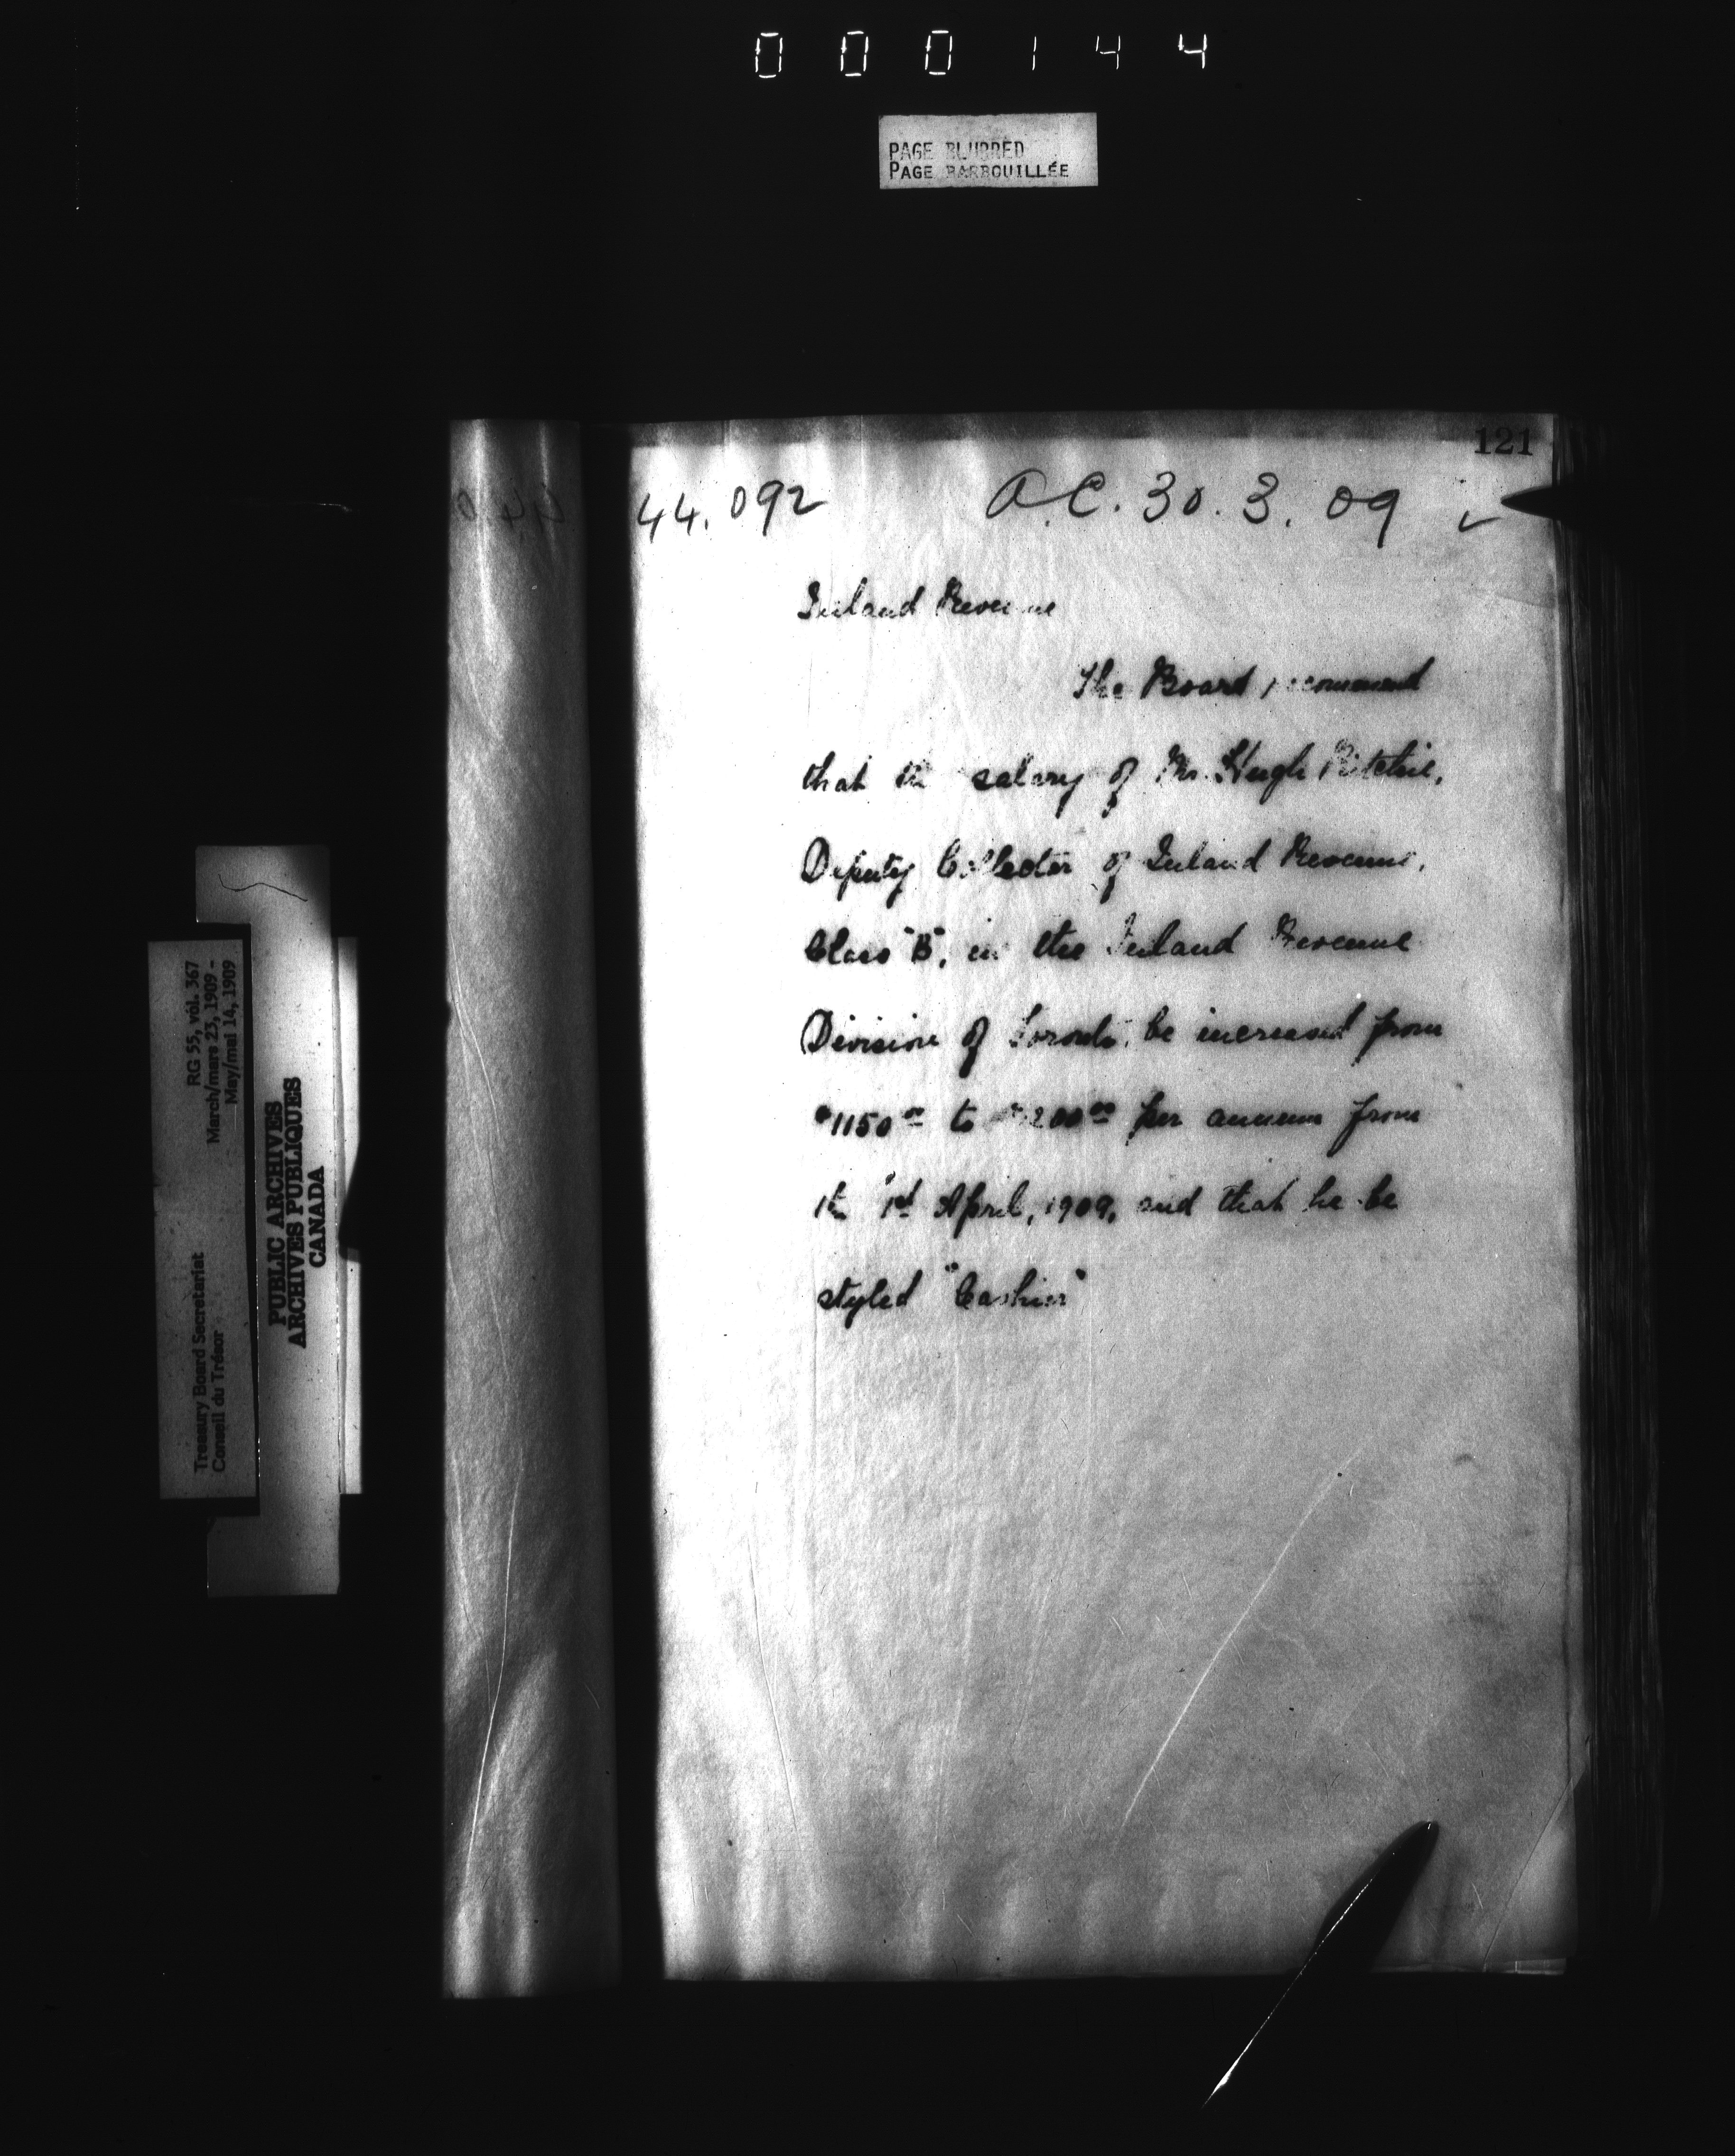 000144
PAGE BLURRED
PAGE BARBOUILLÉE
121
44.092 O.C. 30.3.09 ✓
Inland Revenue
The Board recommend
that the salary of Mr. Hugh Ritchie,
Deputy Collector of Inland Revenue,
Class "B", in the Inland Revenue
Division of Toronto, be increased from
$1150 00 to $1200 00 per annum from
the 1st April, 1909, and that he be
styled "Cashier"
RG 55, vol. 367
March/mars 23, 1909 -
May/mai 14, 1909
Treasury Board Secretariat
Conseil du Trésor
PUBLIC ARCHIVES
ARCHIVES PUBLIQUES
CANADA